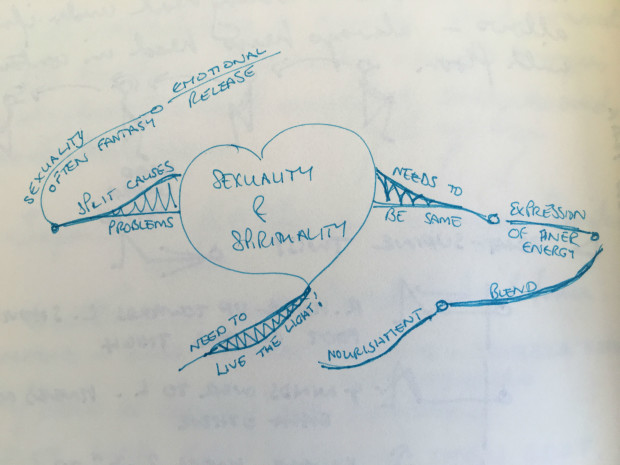 EMOTIONAL
RELEASE
SEXUALITY
OFTEN FANTASY
SPLIT CAUSES
PROBLEMS
SEXUALITY
&
SPIRITUALITY
NEEDS TO
BE SAME
EXPRESSION
OF INNER
ENERGY
BLEND
NOURISHMENT
NEED TO
LIVE THE LIGHT!